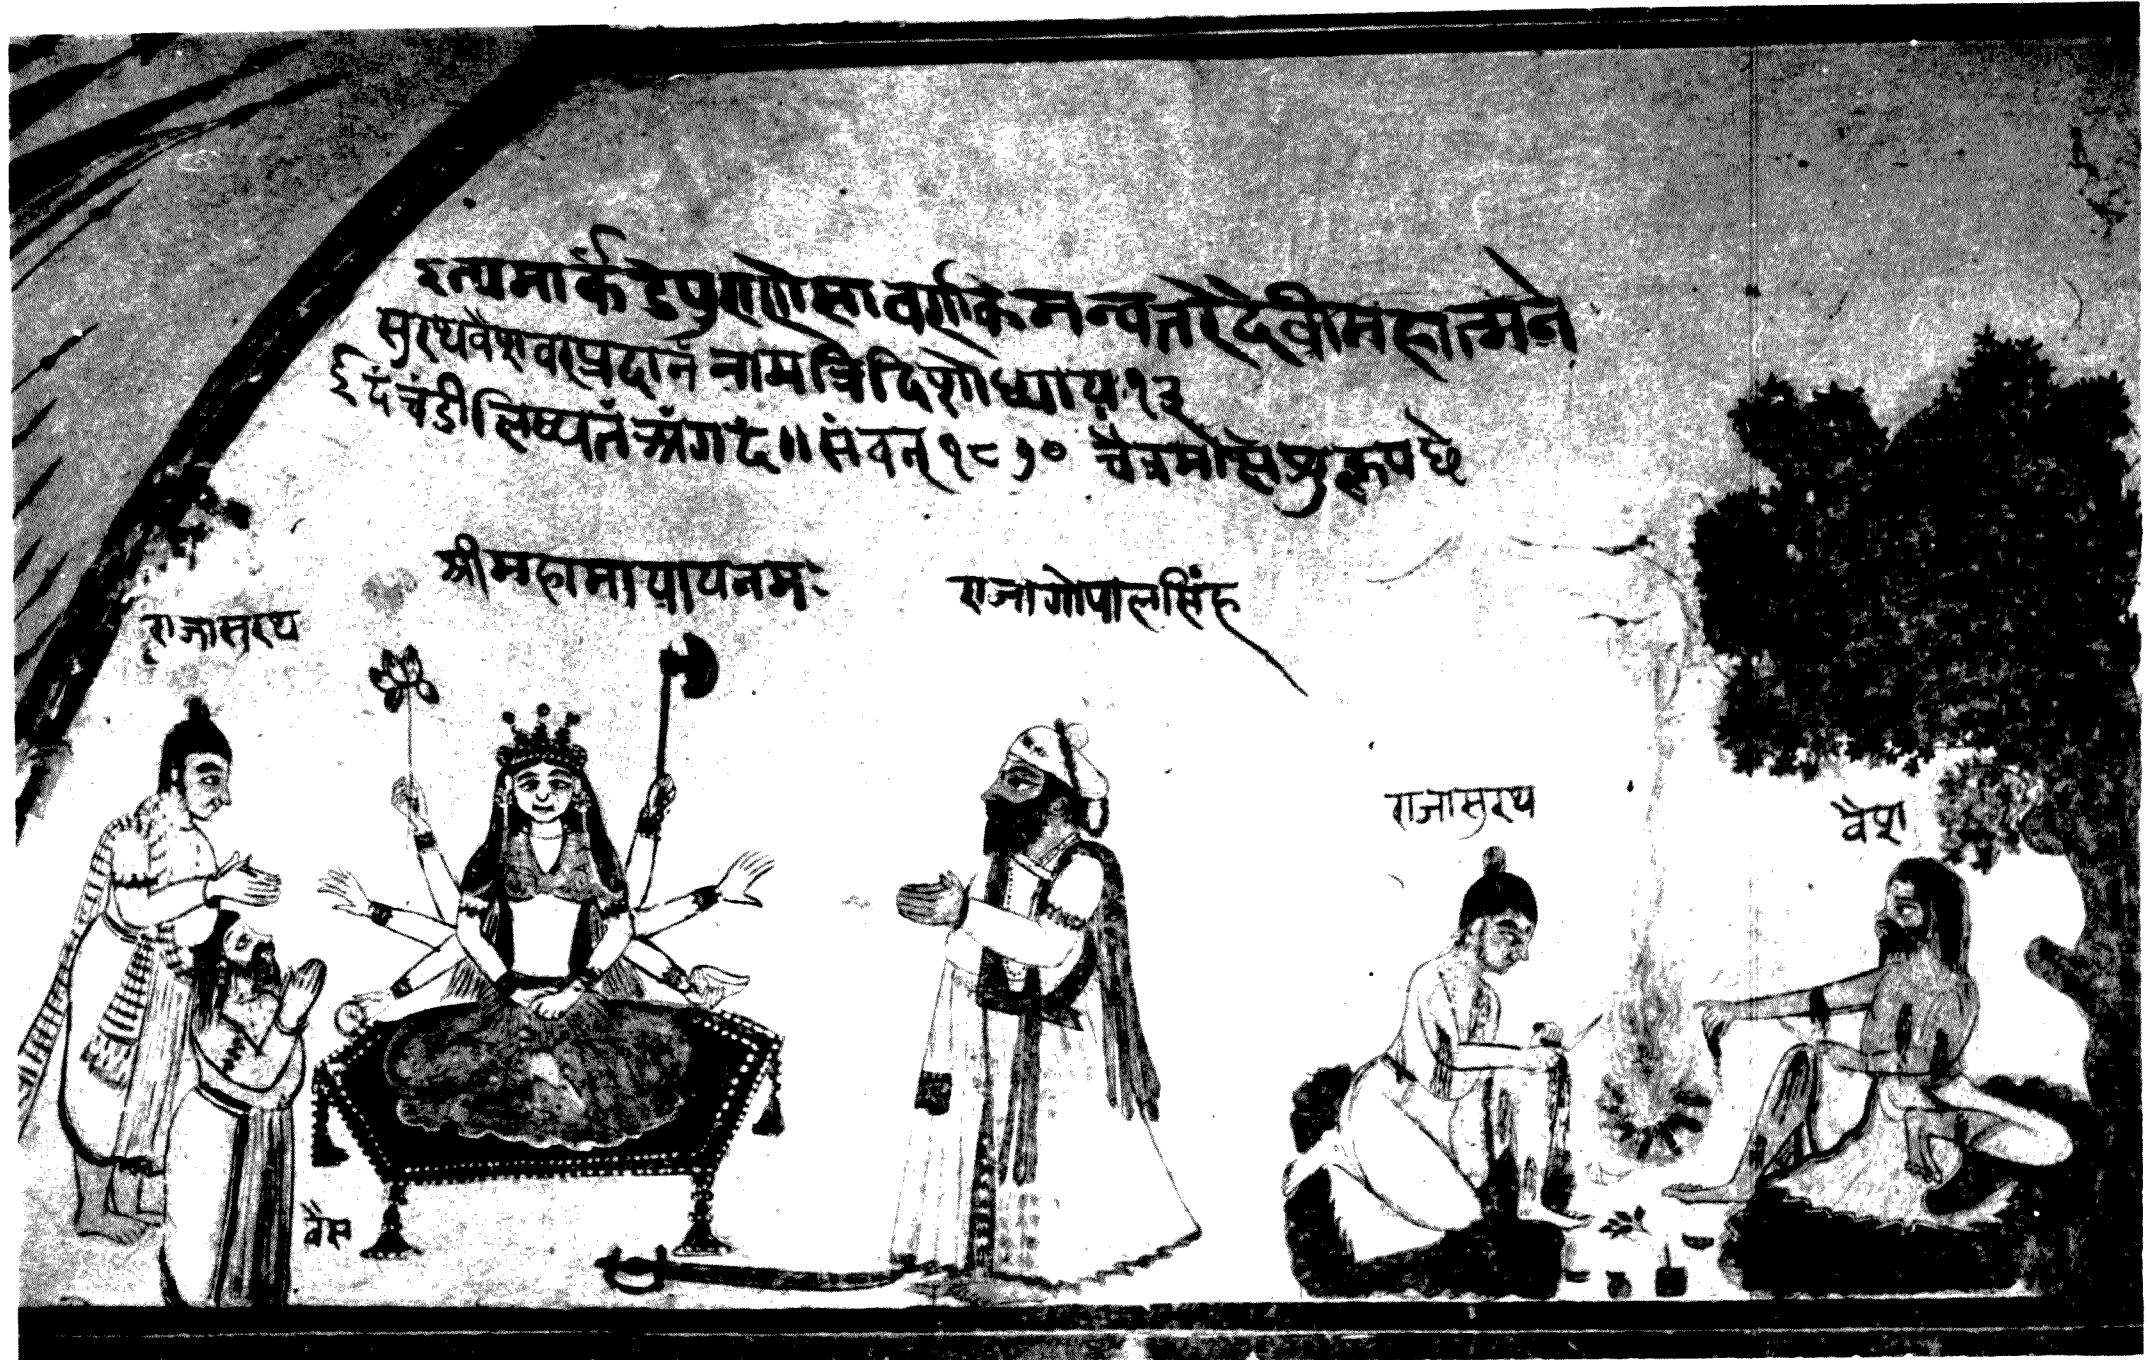 इत्यमार्कंडेपुराणेसावर्णकेमन्वतरेदेवीमहात्मने
सुरथवैशवरप्रदानं नामत्रिदिशोध्यायः१३
ईदंचंडीलिष्यतंअंगदं॥संवत् १८७० चैत्रमासेशुक्लपछे
श्रीमहामायायनमः
राजागोपालसिंह
राजासुरथ
राजासुरथ
वैश
वैस